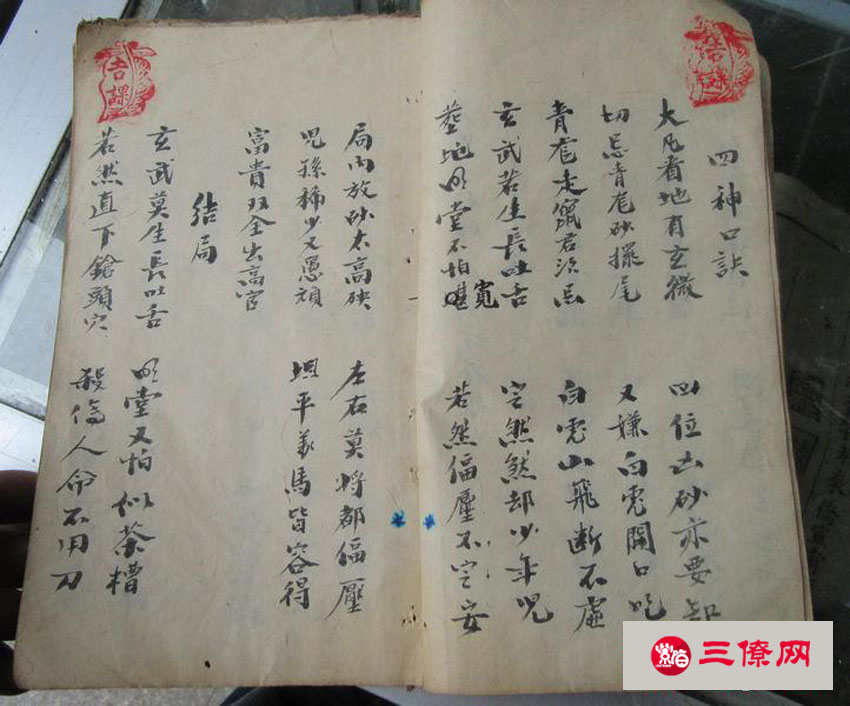 吉課
四神口訣
大凡看地有玄微 四位山砂亦要知
切忌青竜砂擺尾 又嫌白虎開口吃
青竜走竄君須忌 白虎山飛断不虛
玄武若生長吐舌 定然然却少年児
墓地明堂不怕寬 若然偪壓不定安
吉課
局内放砂太高 左右莫将都偪壓
児孫稀少又愚頑 坦平羊馬皆容得
富貴双全出高官
結局
玄武莫生長吐舌 明堂又怕似茶槽
若然直下鎗頭穴 殺傷人命不用刀
三僚网